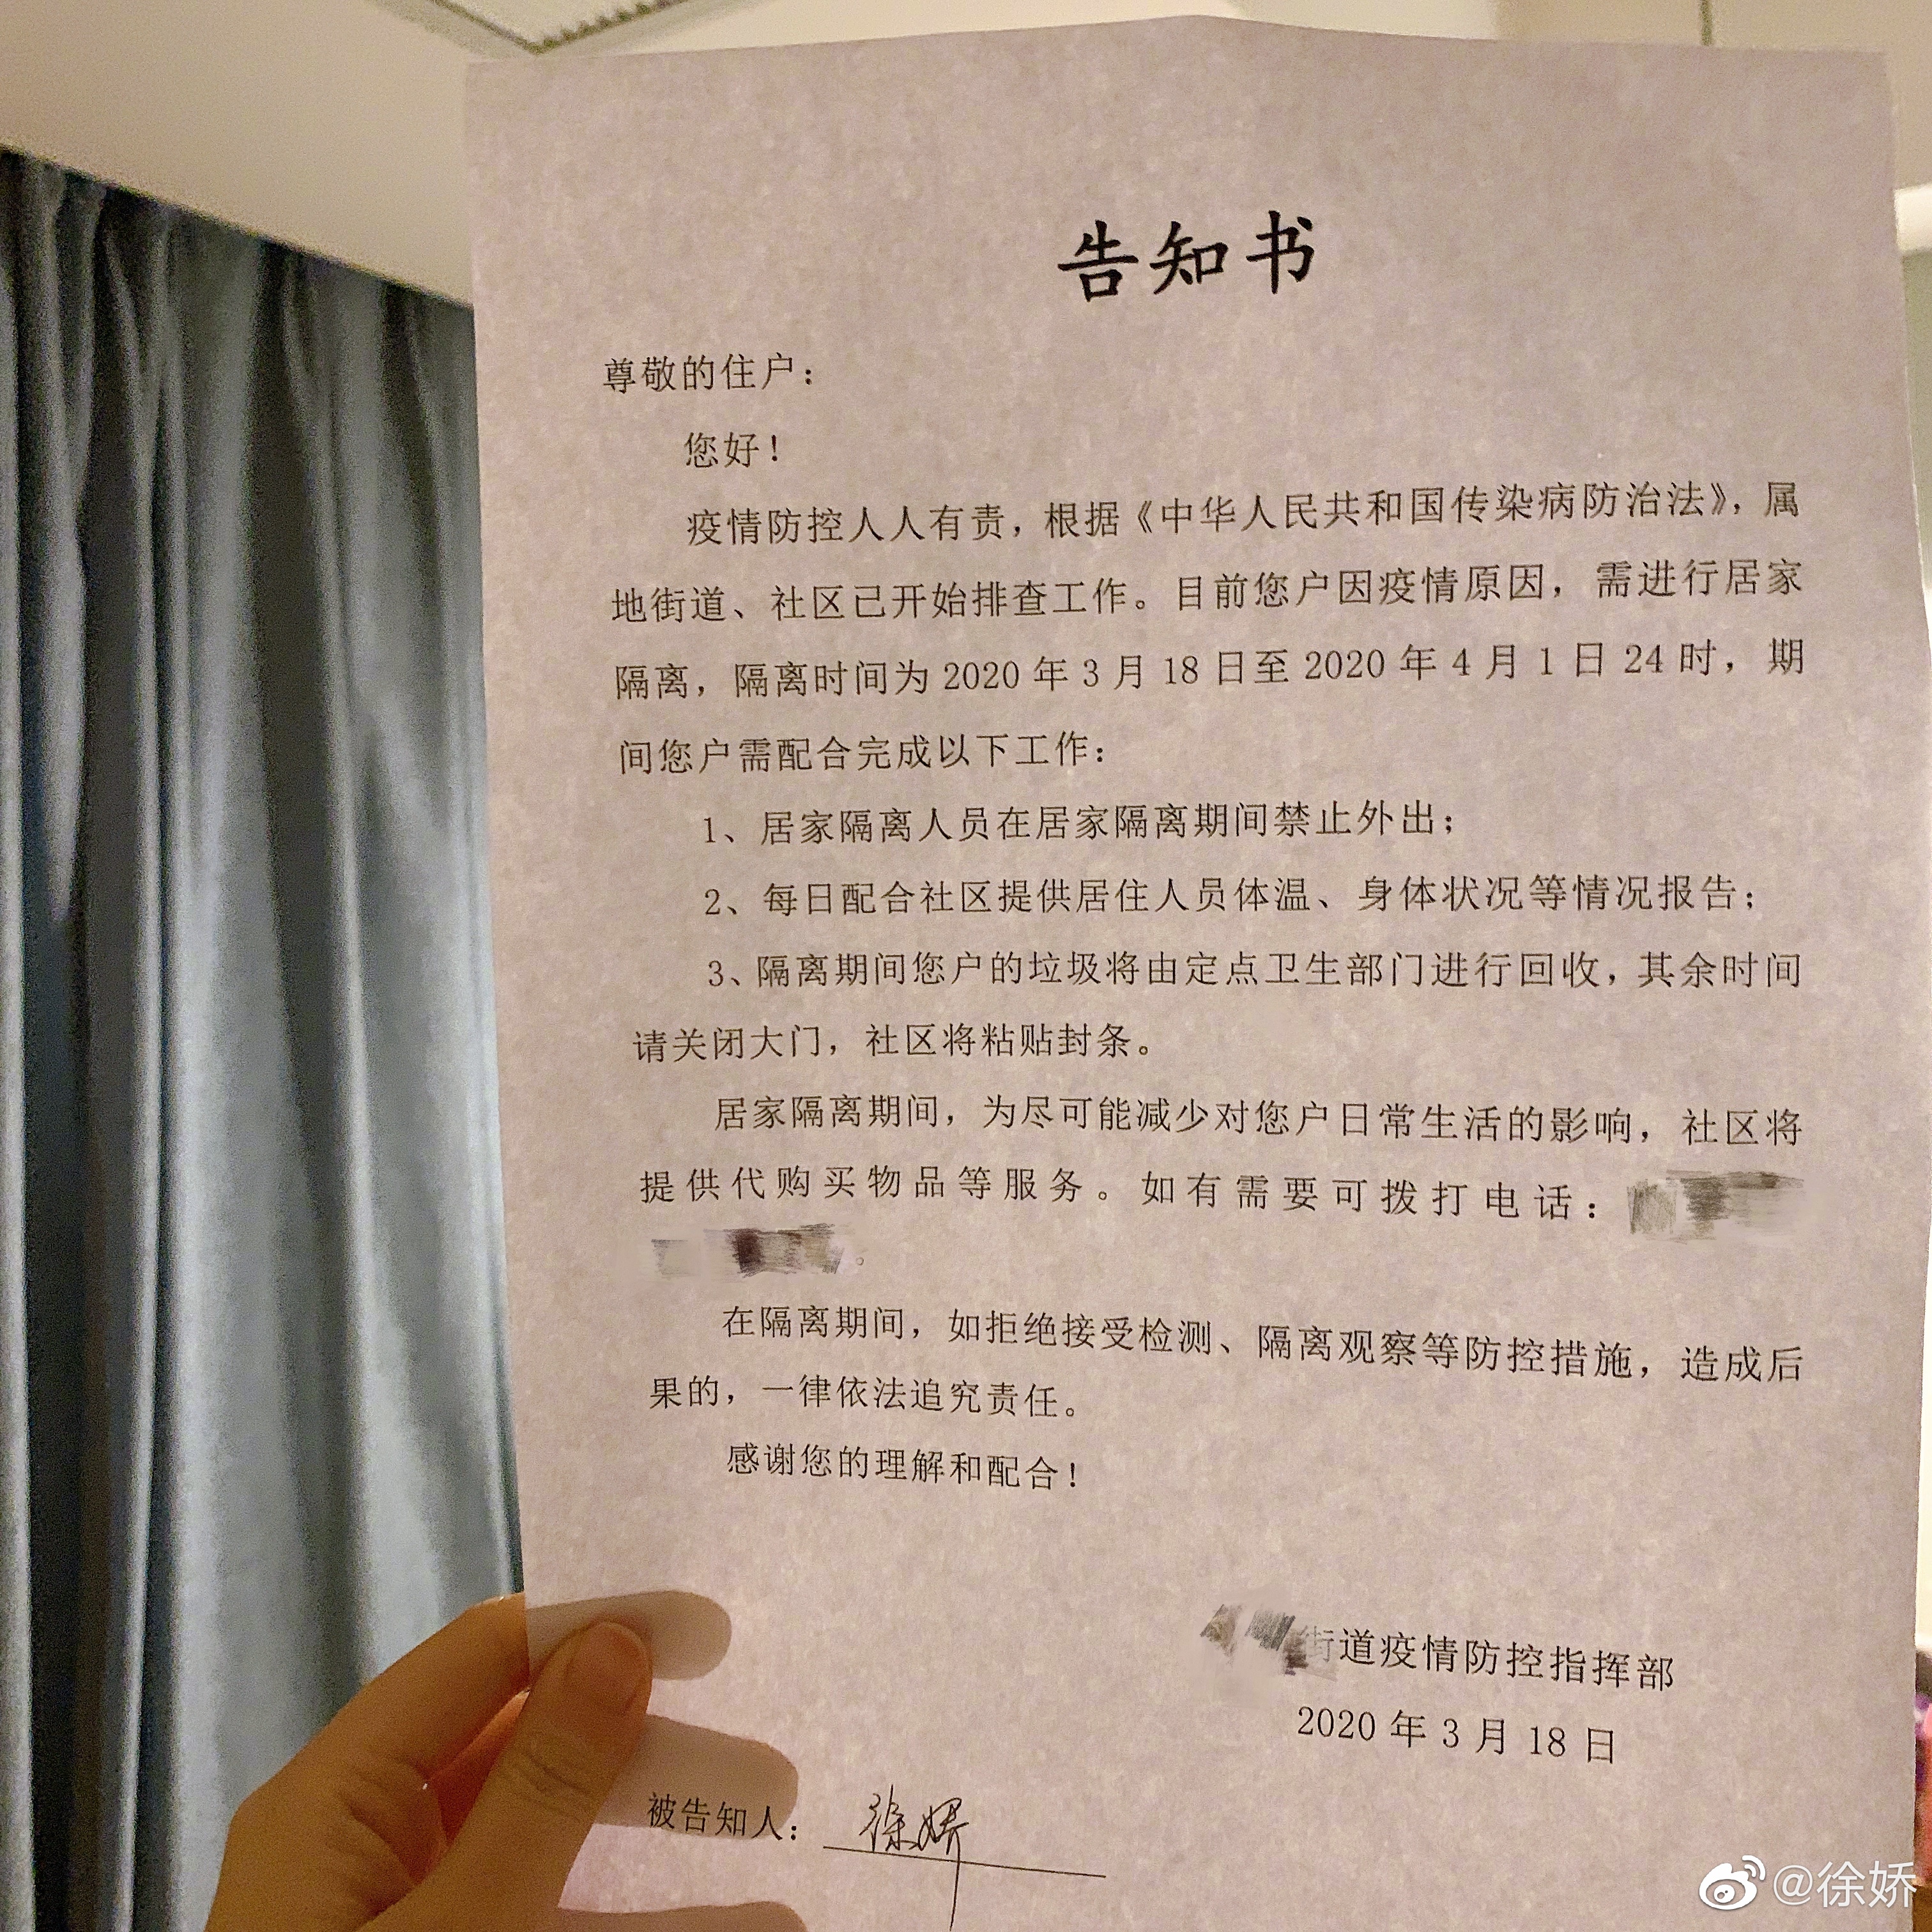 告知书
尊敬的住户：
您好！
疫情防控人人有责，根据《中华人民共和国传染病防治法》，属
地街道、社区已开始排查工作。目前您户因疫情原因，需进行居家
隔离，隔离时间为 2020 年 3 月 18 日至 2020 年 4 月 1 日 24 时，期
间您户需配合完成以下工作：
1、居家隔离人员在居家隔离期间禁止外出；
2、每日配合社区提供居住人员体温、身体状况等情况报告；
3、隔离期间您户的垃圾将由定点卫生部门进行回收，其余时间
请关闭大门，社区将粘贴封条。
居家隔离期间，为尽可能减少对您户日常生活的影响，社区将
提供代购买物品等服务。如有需要可拨打电话：
。
在隔离期间，如拒绝接受检测、隔离观察等防控措施，造成后
果的，一律依法追究责任。
感谢您的理解和配合！
街道疫情防控指挥部
2020 年 3 月 18 日
被告知人：徐娇
@徐娇